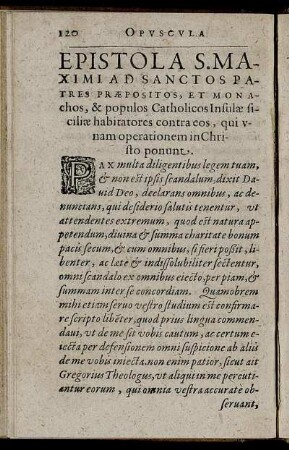 120 OPVSCVLA
EPISTOLA S. MA-
XIMI AD SANCTOS PA-
TRES PRÆPOSITOS, ET MONA
chos, & populos Catholicos Insulæ si-
ciliæ habitatores contra eos, qui v-
nam operationem in Chri-
sto ponunt.
PAX multa diligentibus legem tuam,
& non est ipsis scandalum, dixit Da-
uid Deo, declarans omnibus, ac de-
nuncians, qui desiderio salutis tenentur, vt
attendentes extremum, quod est natura ap-
petendum, diuina & summa charitate bonum
pacis secum, & cum omnibus, si fieri possit, li-
benter, ac lætè & indissolubiliter sectentur,
omni scandalo ex omnibus eiecto, perptam, &
summam inter se concordiam. Quamobrem
mihi etiam seruo vestro studium est confirma-
re scripto libēter, quod prius lingua commen-
daui, vt de me sit vobis cautum, ac certum e-
iecta per defensionem omni suspicione ab aliis
de me vobis iniecta. non enim patior, sicut ait
Gregorius Theologus, vt aliqui in me percuti-
antur eorum, qui omnia vestra accuratè ob-
seruant,